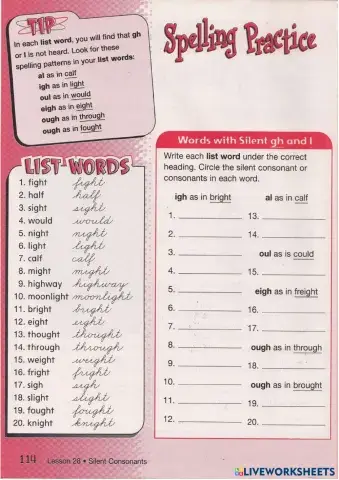 TIP
In each list word, you will find that gh
or l is not heard. Look for these
spelling patterns in your list words:
al as in calf
igh as in light
oul as in would
eigh as in eight
ough as in through
ough as in fought
Spelling Practice
LIST WORDS
1. fight fight
2. half half
3. sight sight
4. would would
5. night night
6. light light
7. calf calf
8. might might
9. highway highway
10. moonlight moonlight
11. bright bright
12. eight eight
13. thought thought
14. through through
15. weight weight
16. fright fright
17. sigh sigh
18. slight slight
19. fought fought
20. knight knight
Words with Silent gh and l
Write each list word under the correct
heading. Circle the silent consonant or
consonants in each word.
igh as in bright
1.
2.
3.
4.
5.
6.
7.
8.
9.
10.
11.
12.
al as in calf
13.
14.
oul as is could
15.
eigh as in freight
16.
17.
ough as in through
18.
ough as in brought
19.
20.
114 Lesson 28 • Silent Consonants
LIVEWORKSHEETS